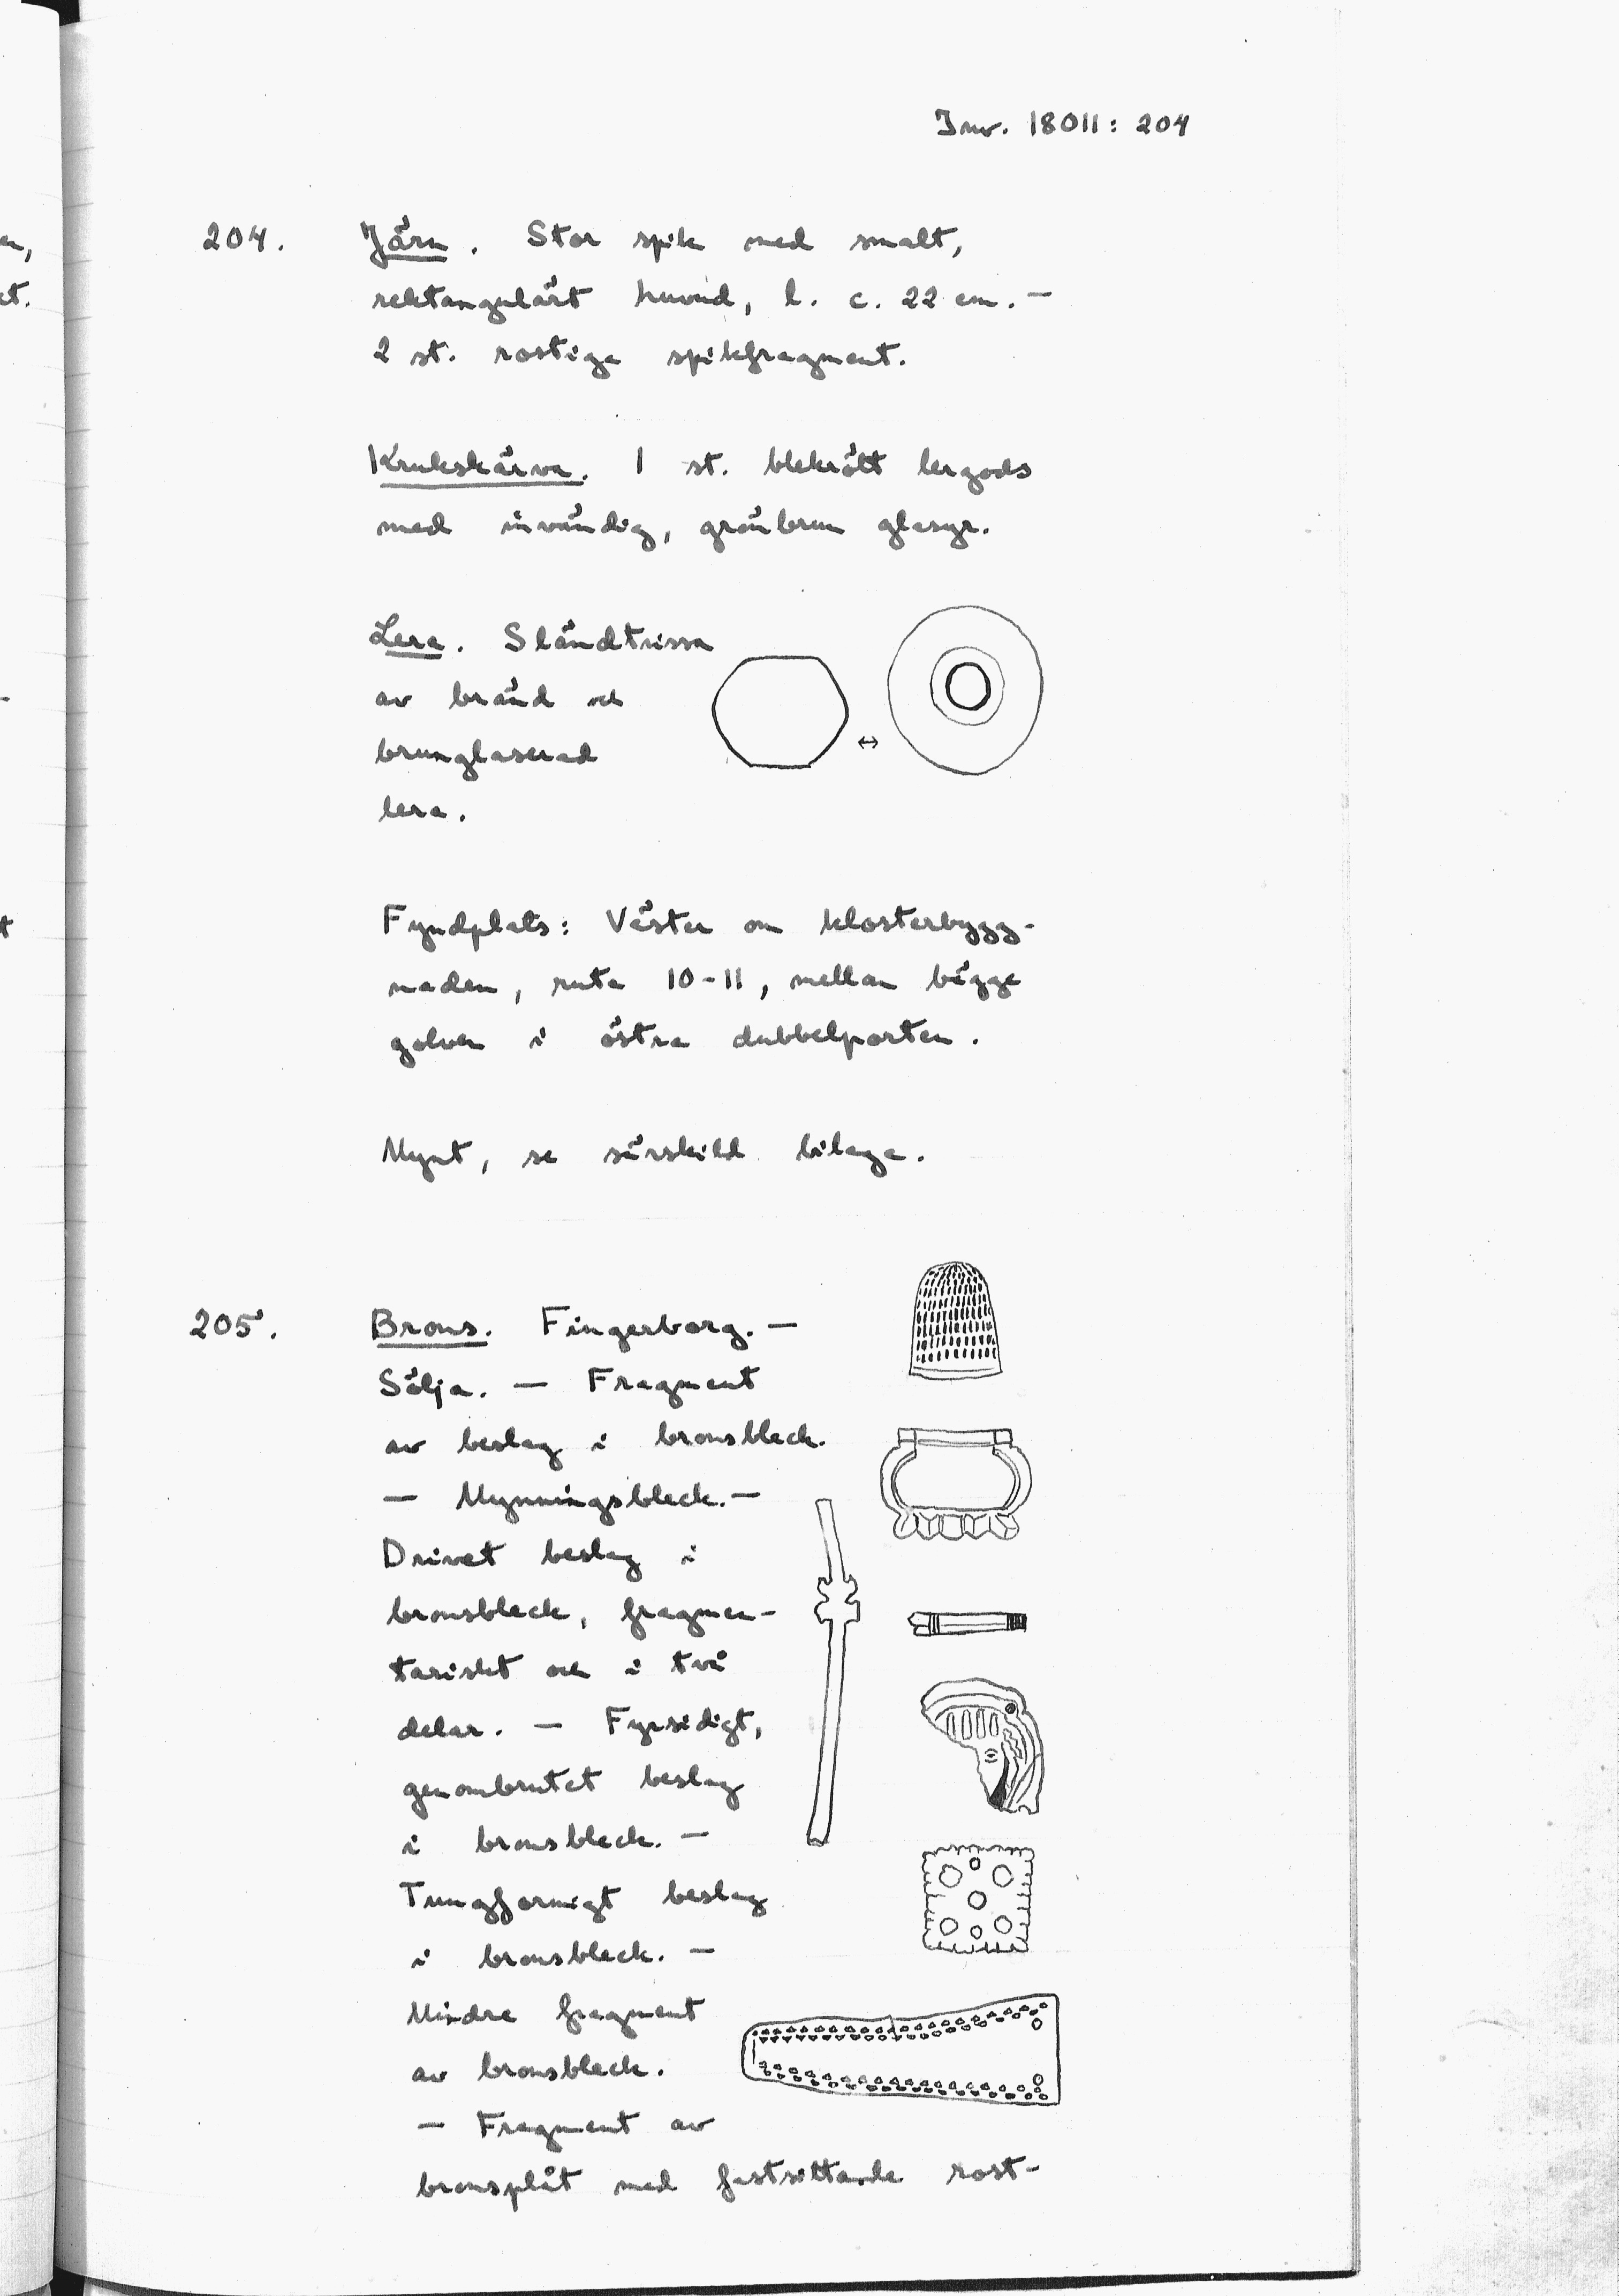 Inv. 18011: 204
204. Järn. Stor spik med smalt,
rektangulärt huvud, l. c. 22 cm. —
2 st. rostiga spikfragment.
Krukskärva. 1 st. blekrött lergods
med invändig, grönbrun glasyr.
Lera. Sländtrissa
av bränd och
brunglaserad
lera.
Fyndplats: Väster om klosterbygg-
naden, ruta 10-11, mellan bägge
golven i östra dubbelporten.
Mynt, se särskild bilaga.
205. Brons. Fingerborg. —
Sölja. — Fragment
av beslag i bronsbleck.
— Mynningsbleck. —
Drivet beslag i
bronsbleck, fragmen-
tariskt och i två
delar. — Fyrsidigt,
genombrutet beslag
i bronsbleck. —
Tungformigt beslag
i bronsbleck. —
Mindre fragment
av bronsbleck.
— Fragment av
bronsplåt med fastsittande rost-